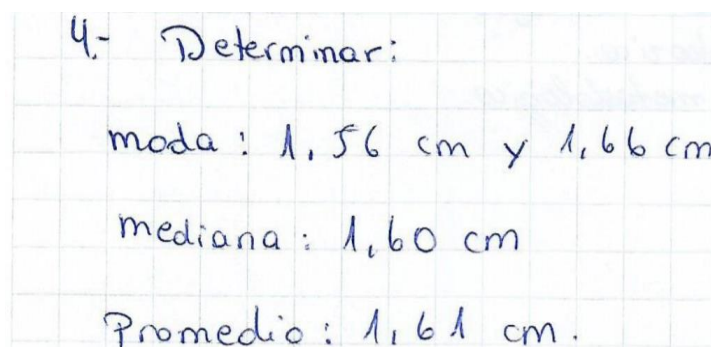 4.- Determinar:
moda: 1,56 cm y 1,66 cm
mediana: 1,60 cm
Promedio: 1,61 cm.